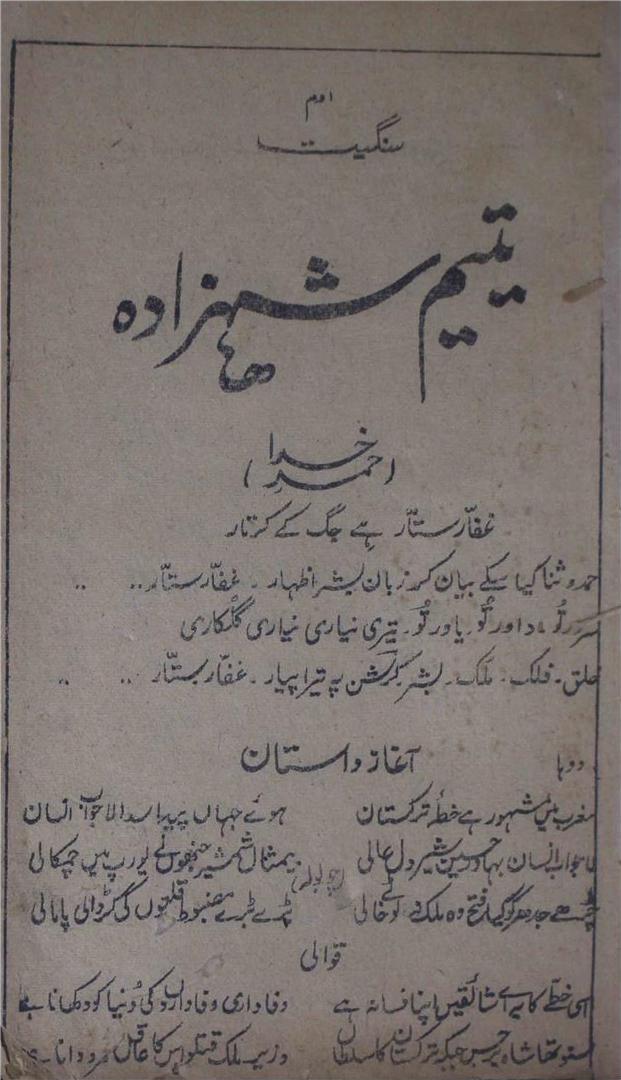 اوم
سنگیت
یتیم شہزادہ
(حمدِ خدا)
غفّار ستّار ہے جگ کے کرتار
حمد و ثنا کیا سکے بیان کر زبان بشر اظہار ۔ غفّار ستّار . . . .
سرور تُو، داور تُو، یاور تُو ۔ تیری نیاری نیاری گلکاری
خلق ۔ فلک ۔ ملک ۔ بشر ۔ پہ تیرا پیار ۔ غفّار ستّار . . . .
آغاز داستان
دوہا
مغرب میں مشہور ہے خطّہ ترکستان ہوئے جہاں پیدا سدا لاجواب انسان
لاجواب انسان بہادر حسین شیر دل عالی بیمثال شمشیر جنھوں نے یورپ میں چمکالی
(چوبولہ)
چڑھے جدھر گو کیا فتح وہ ملک نہ لوٹے خالی بڑے بڑے مضبوط قلعوں کی کر ڈالی پامالی
قوالی
اسی خطّے کا پیارے شائقیں اپنا فسانہ ہے وفاداری وفاداروں کی دُنیا کو دکھانا ہے
سنو تھا شاہ جبکہ ترکستان کا سلطاں وزیر ملک قتلو اس کا عاقل مرد دانا ہے